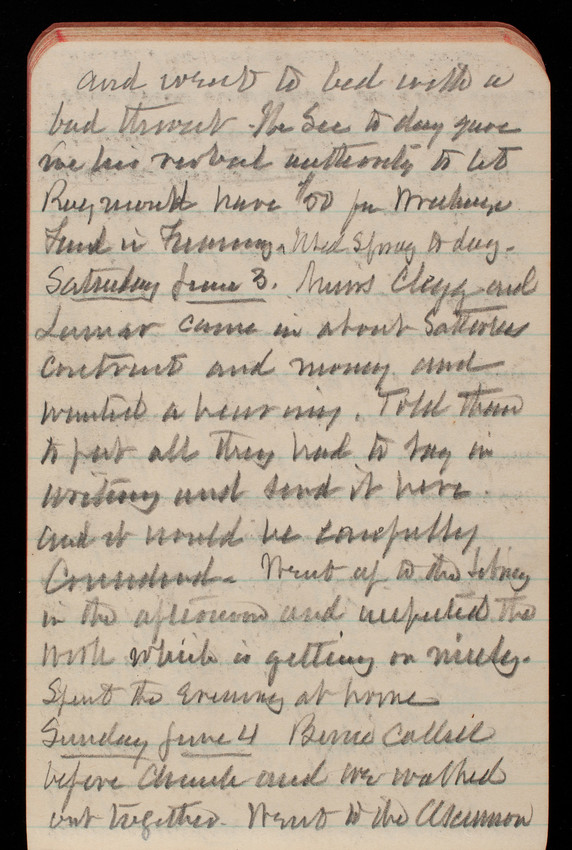 and went to bed with a
bad throat. The Sec to day gave
me his verbal authority to let
Raymond have $50 for
Land in Wed Spray to day.
Saturday June 3. Clegg and
Lamar came in about
contract and money and
wanted a hearing. Told them
to put all they had to say in
writing and send it here.
and it would be carefully
Considered. Went up to the Library
in the afternoon and inspected the
work which is getting on nicely.
Spent the Evening at home
Sunday June 4 Bernie called
before Church and we walked
out together. Went to the Ascension